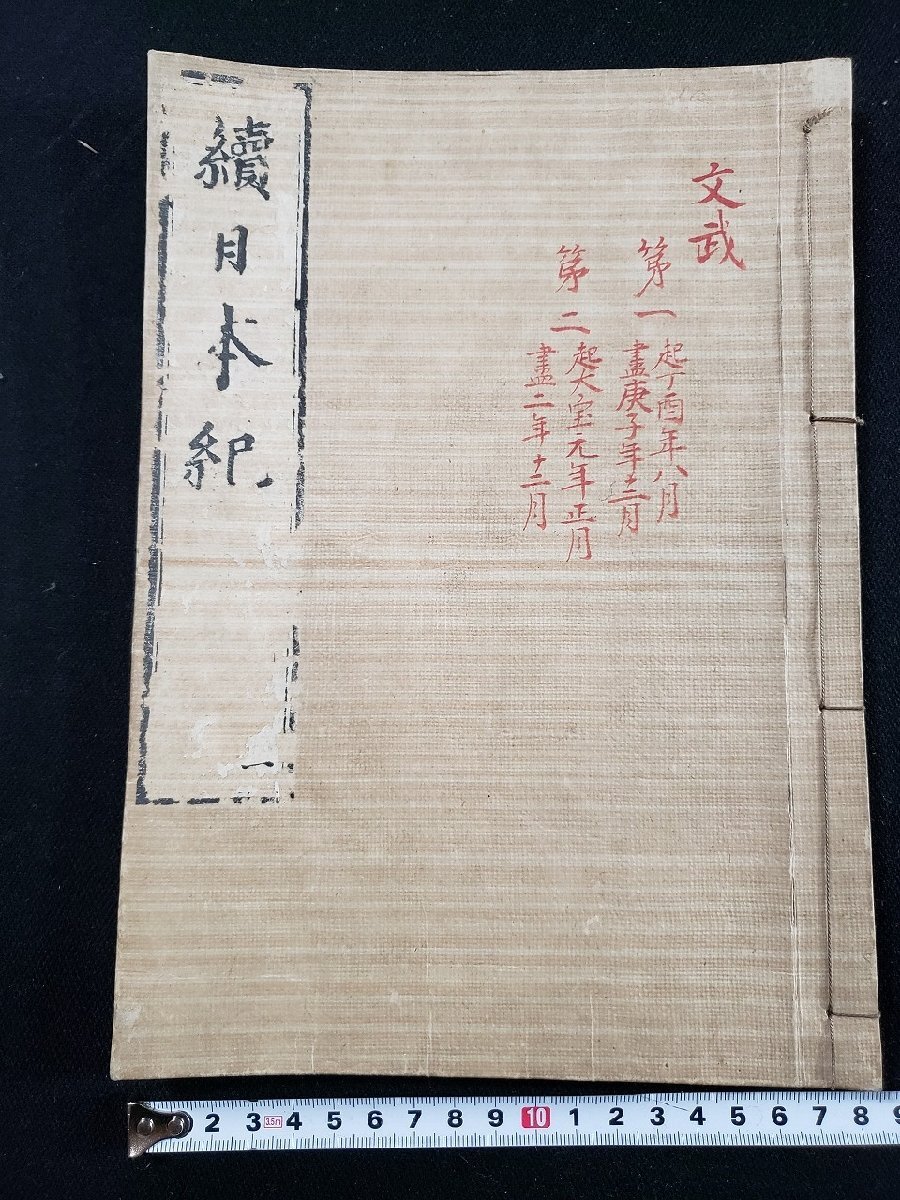 文武
第一
起丁酉年八月
盡庚子年十二月
第二
起大宝元年正月
盡二年十二月
續日本紀
一
2 3 3.5 4 5 6 7 8 9 10 1 2 3 4 5 6 7 8 9